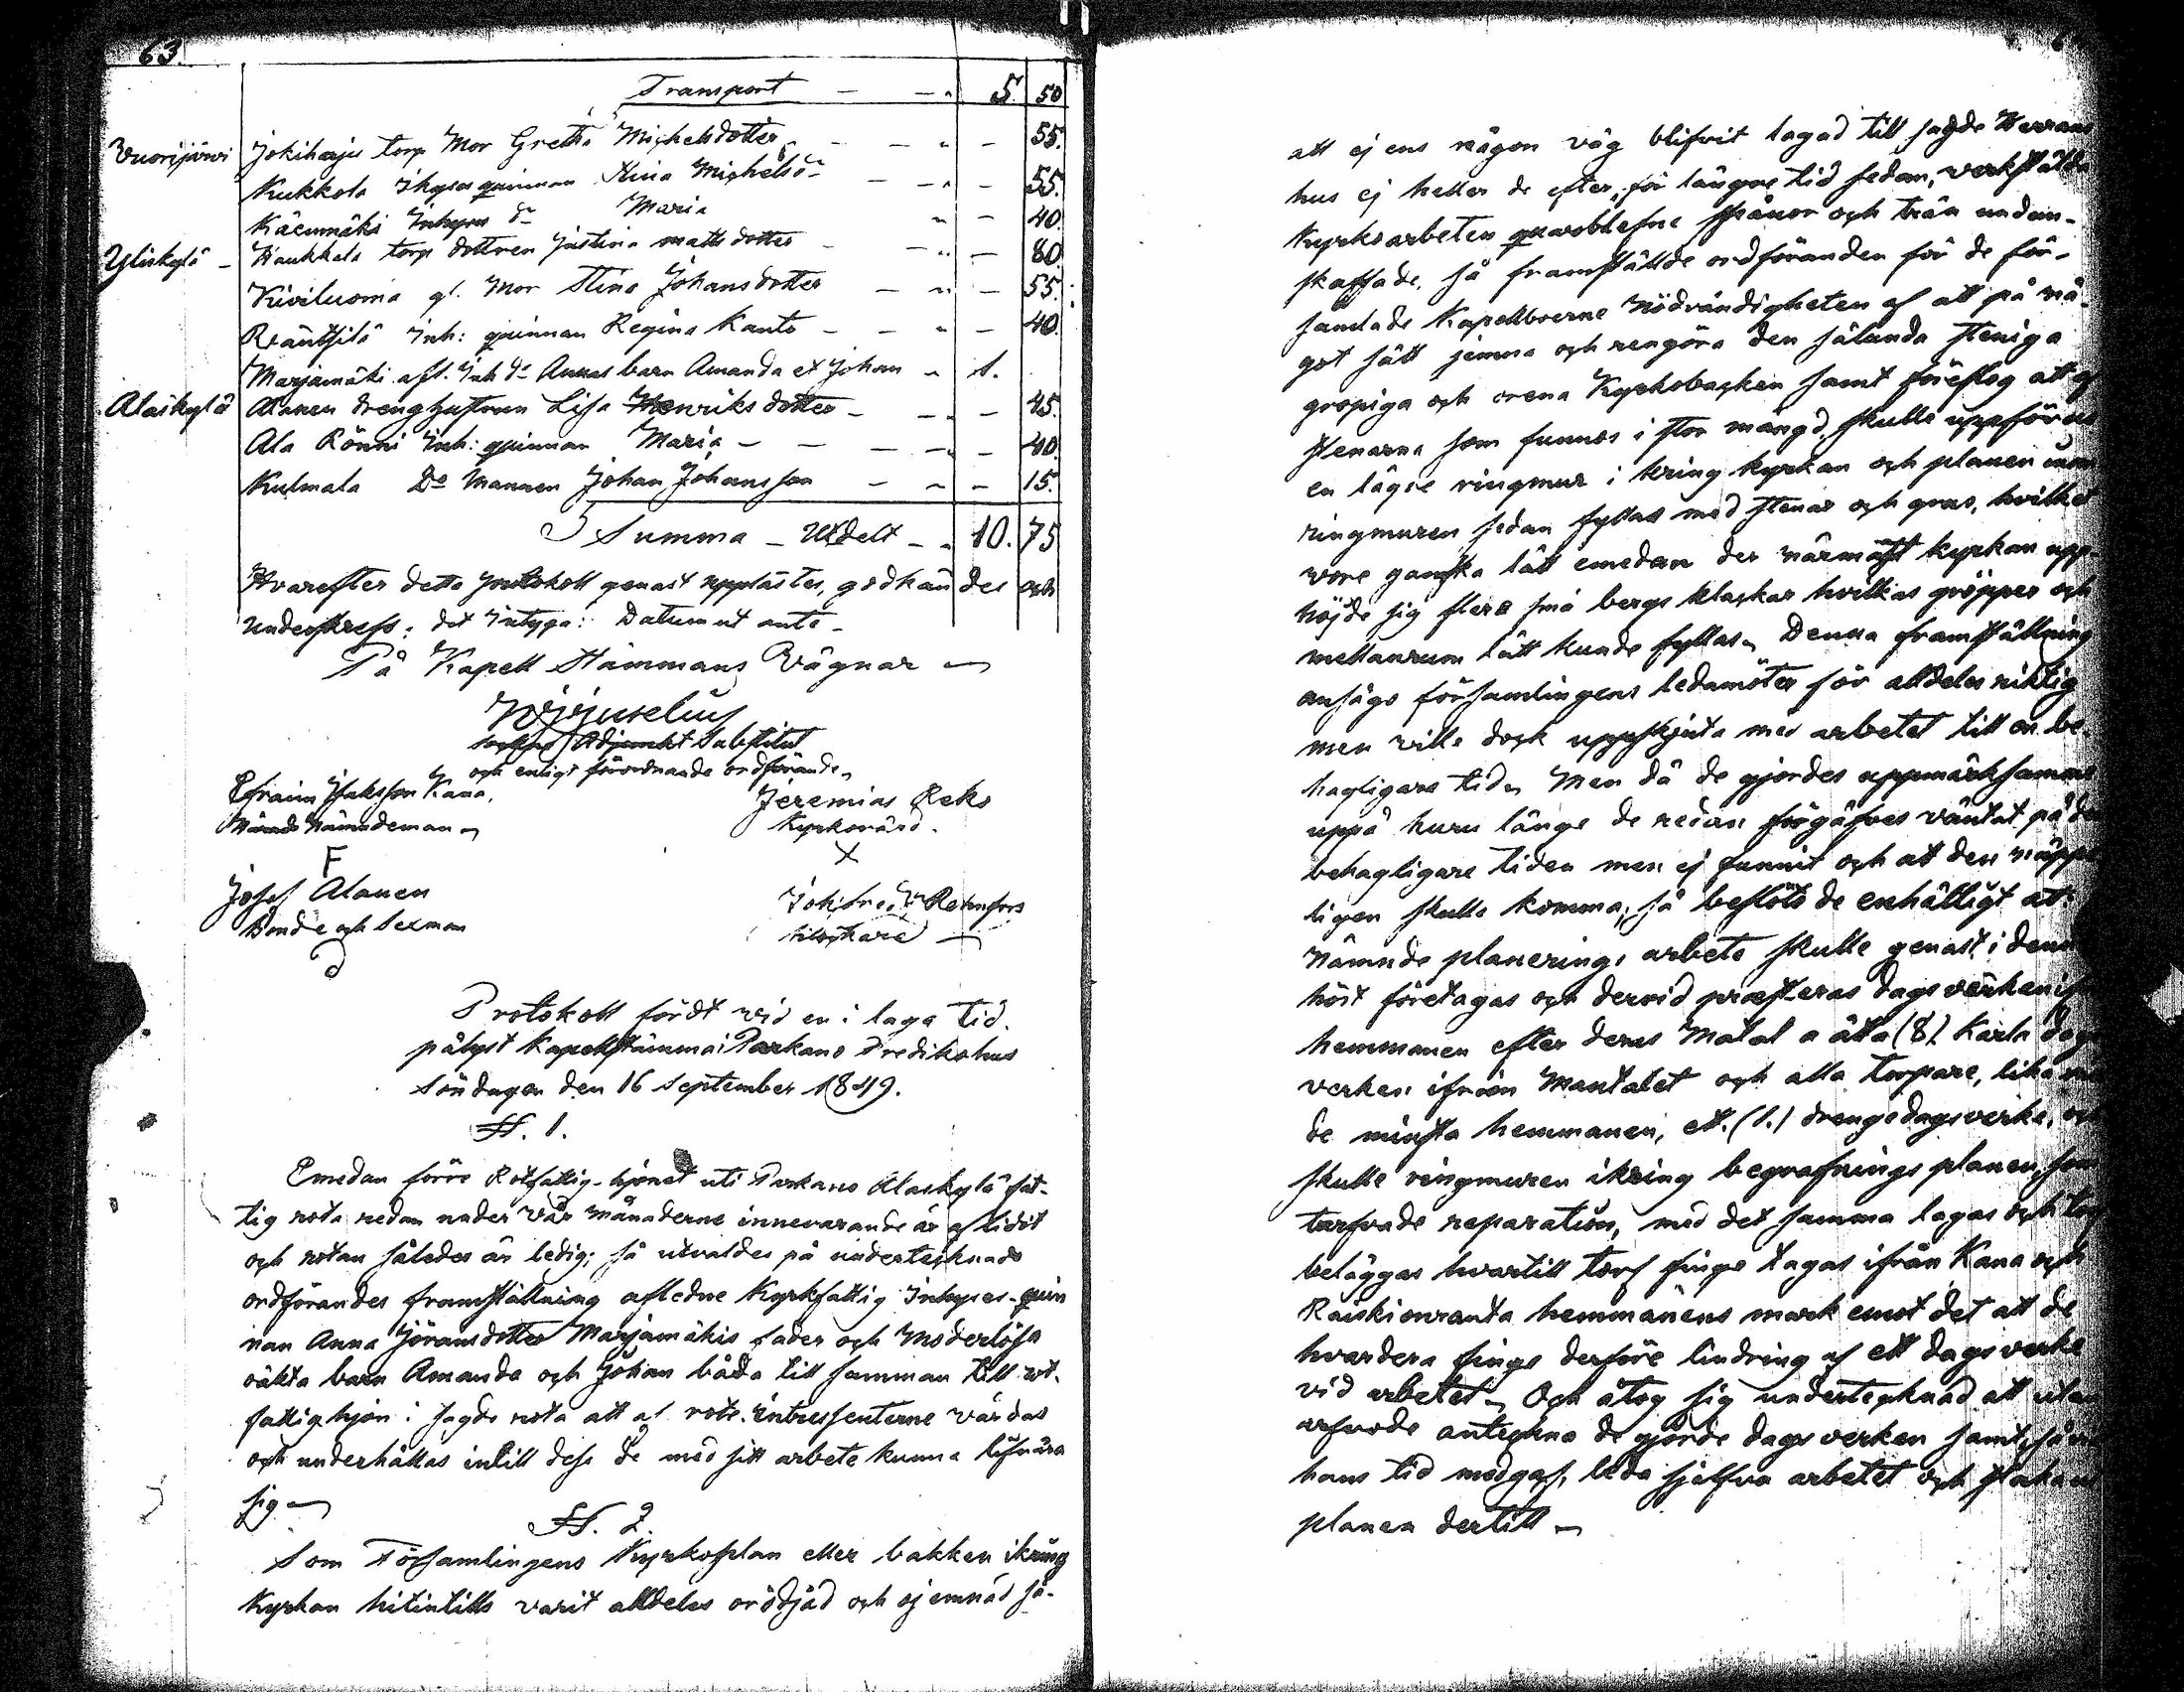 63.
Transport — — „ 5. 50
Vuorijärvi Jokiharju torp Mor Greta Michelsdotter — — „ — 55.
Kukkola Ihyses qvinnan Stina Michels dr — — „ — 55.
Käenmäki Inhyses dr Maria „ — 40.
Yliskylä — Haukkala torp dottren Justina Mattsdotter — — „ — 80
Kiviluoma gl. Mor Stina Johansdotter — „ — 55.
Räntsilä Inh: qvinnan Regina Kanto — — „ — 40.
Marjamäki afl. Inh ds Annas barn Amanda et Johan „ 1.
Alaskylä Alanen drenghustrun Lisa Henriksdotter — — „ — 45.
Ala Rönni Inh: qvinnan Maria — — — — „ — 40.
Kulmala Do Mannen Johan Johansson — „ — 15.
Summa — Utdelt — „ 10. 75
Hvarefter detta protokoll genast upplästes, godkändes och
underskrefs; det intyga: Datum ut ante —
På Kapell Stämmans Vägnar —
Adjunkt Substitut
och enligt förordnande ordförande,
Efraim Isaksson Kana, Jeremias Reko
Nämndeman Kyrkovärd.
F X
Josef Alanen Rehnfors
Bonde och Sexman klockare —
Protokoll fördt vid en i laga tid
pålyst Kapellstämma i Parkano Predikohus
Söndagen den 16 September 1849.
§. 1.
Emedan förre Rotfattig-hjonet uti Parkano Alaskylä fat-
tig rota redan under Vår månaderne innevarande år aflidit
och rotan således är ledig; så utvaldes på undertecknads
ordförandes framställning afledne Kyrkfattig Inhyses-qvin
nan Anna Jöransdotter Marjamäkis fader och Moderlösa
oäkta barn Amanda och Johan båda till samman till rot-
fattighjon i sagde rota att af rote-intressenterne vårdas
och underhållas intill dess de med sitt arbete kunna lifnära
sig —
§. 2.
Som Församlingens Kyrkoplan eller bakken ikring
Kyrkan hitintills varit alldeles orödjad och ojemnad så-
att ej ens någon väg blifvit lagad till sagde Herrans
hus ej heller de efter, för längre tid sedan, verkstälda
Kyrkoarbeten qvarblefne spånor och trän undan-
skaffade, så framställde ordföranden för de för-
samlade Kapellboerne Nödvändigheten af att på nå-
got sätt jemna och rengöra den sålunda steniga
gropiga och orena Kyrkobacken samt föreslog att af
stenarna som funnos i stor mängd, skulle uppföras
en lägre ringmur i kring kyrkan och planen inom
ringmuren sedan fyllas med stenar och grus, hvilket
vore ganska lätt emedan der närmast kyrkan upp-
höjde sig flera små bergs klackar hvilkas gropper och
mellanrum lätt kunde fyllas. Denna framställning
ansågo församlingens ledamöter för alldeles riktig
men ville dock uppskjuta med arbetet till en be-
hagligare tid. Men då de gjordes uppmärksamma
uppå huru länge de redan förgäfves väntat på den
behagligare tiden men ej funnit och att den näppe
ligen skulle komma, så beslöto de enhälligt att
nämnde planerings arbete skulle genast i denna
höst företagas och dervid præsteras dagsverken ifrån
hemmanen efter deras Matal a åtta (8) Karla dags
verken ifrån Mantalet och alla torpare, lika med
de minsta hemmanen, ett (1.) drengedagsverke, och
skulle ringmuren ikring begrafnings planen, som
tarfvade reparation, med det samma lagas och torf
beläggas hvartill torf finge tagas ifrån Kana och
Raiskionranta hemmanens mark emot det att de
hvardera finge derföre lindring af ett dagsverke
vid arbetet — Och åtog sig undertecknad att utan
arfvode anteckna de gjorde dagsverken samt, så
hans tid medgaf, leda sjelfva arbetet och staka
planen dertill —